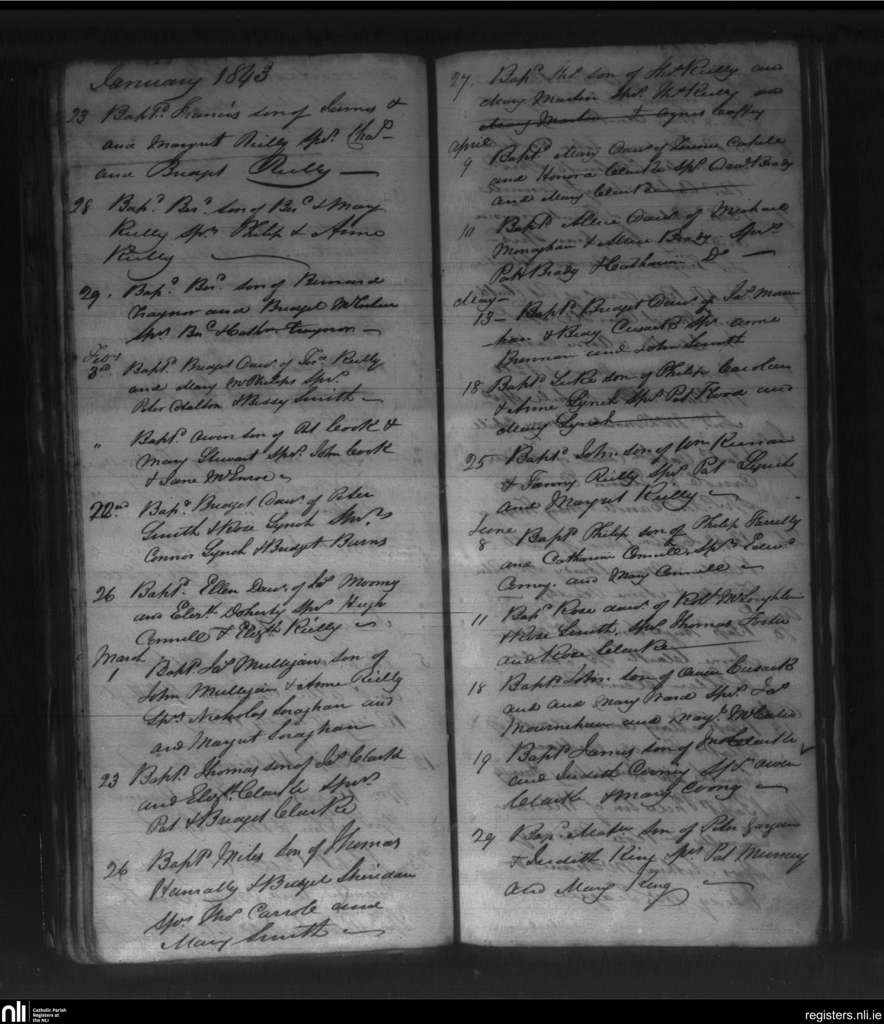 January 1843
23 Bapt.d Francis son of James &
and Margret Reilly Sps. Cha.s
and Bridget Reilly
28 Bap.d Ber.d son of Ber.d & Mary
Reilly Sp.rs Philip & Anne
Reilly
29. Bap.d Ber.d son of Bernard
Traynor and Bridget
Spr.s Ber.d & Traynor
Feb.y
3rd. Bapt.d Bridget Daur. of Reilly
and Mary McPhilips Spr.s
Peter & Bessy Smith
" Bapt.d Owen son of Pat Cook &
Mary Stewart Spr.s John Cook
& Jane McEnroe
22nd Bap.d Bridget Daur. of Peter
Smith & Rose Lynch Spr.s
Connor Lynch & Bridget Burns
26 Bapt.d Ellen Daur. of Ja.s Mooney
and Elizth. Doherty Spr.s Hugh
Connell & Elizth. Reilly
March
1 Bapt.d Ja.s Mulligan son of
John Mulligan & Anne Reilly
Spr.s Nicholas Soraghan and
and Margret Soraghan
23 Bapt.d Thomas son of Ja.s Clarke
and Elizth. Clarke Spr.s
Pat & Bridget Clarke
26 Bapt.d Miles son of Thomas
& Bridget Sheridan
Spr.s Tho.s Carrole and
Mary Smith
27. Bap.d Tho.s son of Tho.s Reilly and
Mary Martin Spr.s Tho.s Reilly and
Mary Martin & Agnes Caffry
April
9 Bapt.d Mary Daur. of
and Honora Clarke Sp.s Brady
and Mary Clarke
10 Bapt.d Alice Daur. of Michael
Monaghan & Alice Brady Spr.s
Patt Brady & Catharine Do
May
13 Bapt.d Bridget Daur. of Ja.s
& Cusack Sp.s Anne
Brennan and John Smith
18 Bapt.d Luke son of Philip Carolan
& Anne Lynch Sp.s Pat Flood and
Mary Lynch
25 Bapt.d John son of Wm Kiernan
& Fanny Reilly Sp.s Pat Lynch
and Margret Reilly
June
8 Bapt.d Philip son of Philip Farrelly
and Catharine Connell Sp.s Edwd.
and Mary Connell
11 Bap.d Rose daur. of Robt. McLoughlin
& Rose Smith, Sp.s Thomas Foster
and Rose Clarke
18 Bapt.d John son of Owen Cusack
and and Mary Ward Spr.s Ja.s
and
19 Bapt.d James son of Clarke
and Judith Cooney Sp.s Owen
Clarke & Mary
29 Bap.d son of Peter
& Judith King Sprs Pat Murray
and Mary King
nli Catholic Parish
Registers at
the NLI
registers.nli.ie